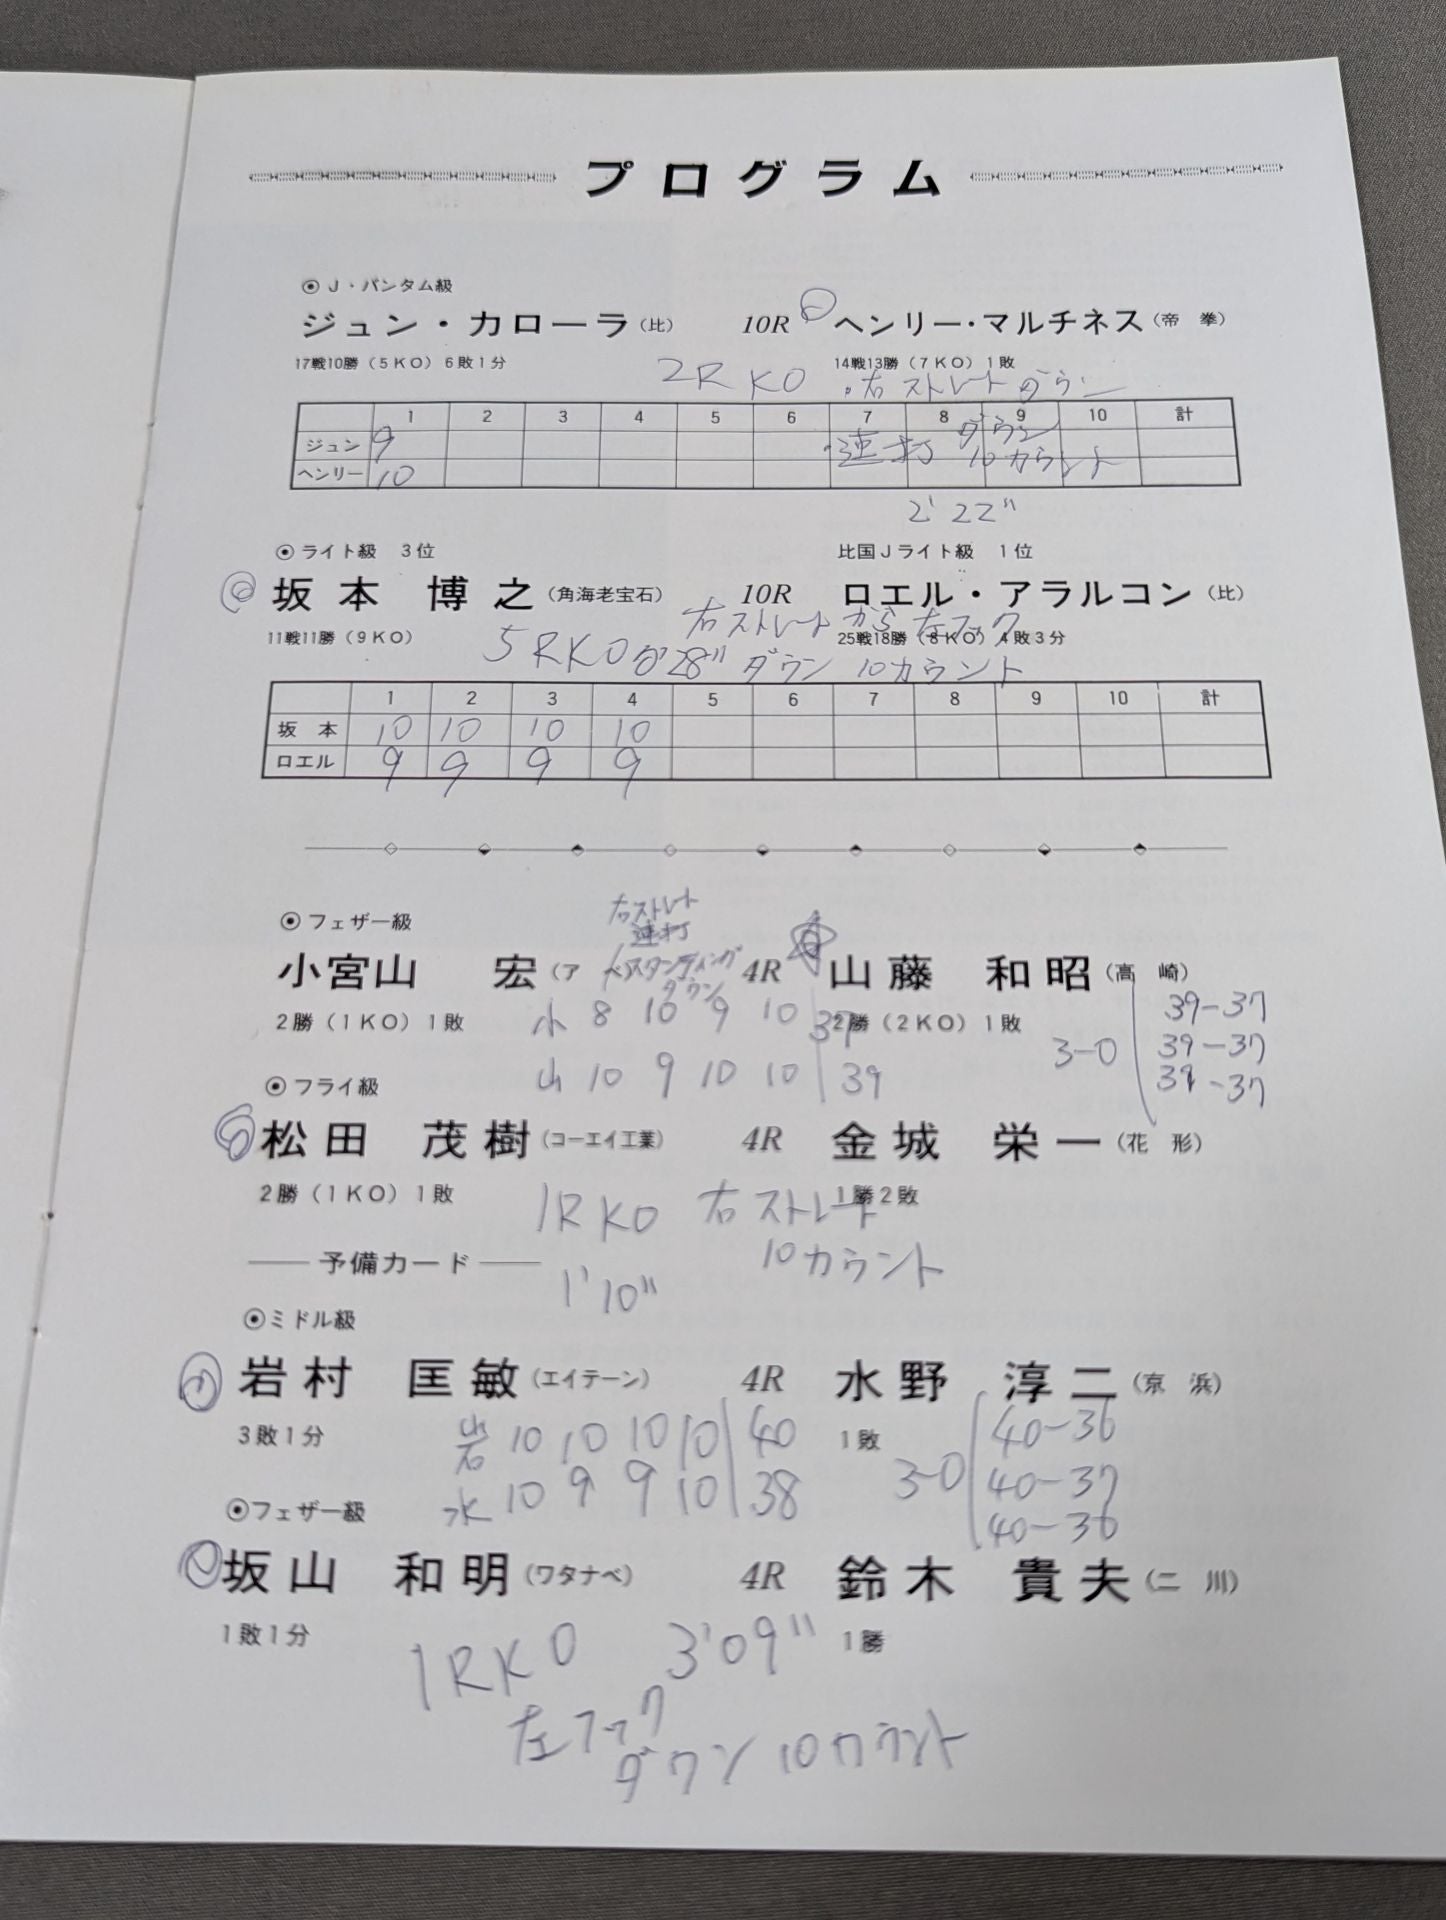 プログラム
◉ J・バンタム級
ジュン・カローラ（比） 10R ヘンリー・マルチネス（帝 拳）
17戦10勝（5KO）6敗1分 14戦13勝（7KO）1敗
2R KO ・右ストレートダウン
1 2 3 4 5 6 7 8 9 10 計
ジュン 9
ヘンリー 10
・連打 ダウン
10カウント
2'22"
◉ ライト級 3位 比国Jライト級 1位
坂本 博之（角海老宝石） 10R ロエル・アラルコン（比）
11戦11勝（9KO） 25戦18勝（8KO）4敗3分
右ストレートから左フック
5RKO 0'28" ダウン 10カウント
1 2 3 4 5 6 7 8 9 10 計
坂本 10 10 10 10
ロエル 9 9 9 9
◉ フェザー級
右ストレート
連打
スタンディング
ダウン
小宮山 宏（ア 4R 山藤 和昭（高 崎）
2勝（1KO）1敗 2勝（2KO）1敗
小 8 10 9 10 37
山 10 9 10 10 39
3-0
39-37
39-37
39-37
◉ フライ級
松田 茂樹（コーエイ工業） 4R 金城 栄一（花 形）
2勝（1KO）1敗 1勝2敗
1RKO 右ストレート
10カウント
1'10"
予備カード
◉ ミドル級
岩村 匡敏（エイテーン） 4R 水野 淳二（京 浜）
3敗1分 1敗
岩 10 10 10 10 40
水 10 9 9 10 38
3-0
40-36
40-37
40-36
◉ フェザー級
坂山 和明（ワタナベ） 4R 鈴木 貴夫（二 川）
1敗1分 1勝
1RKO 3'09"
左フック
ダウン 10カウント